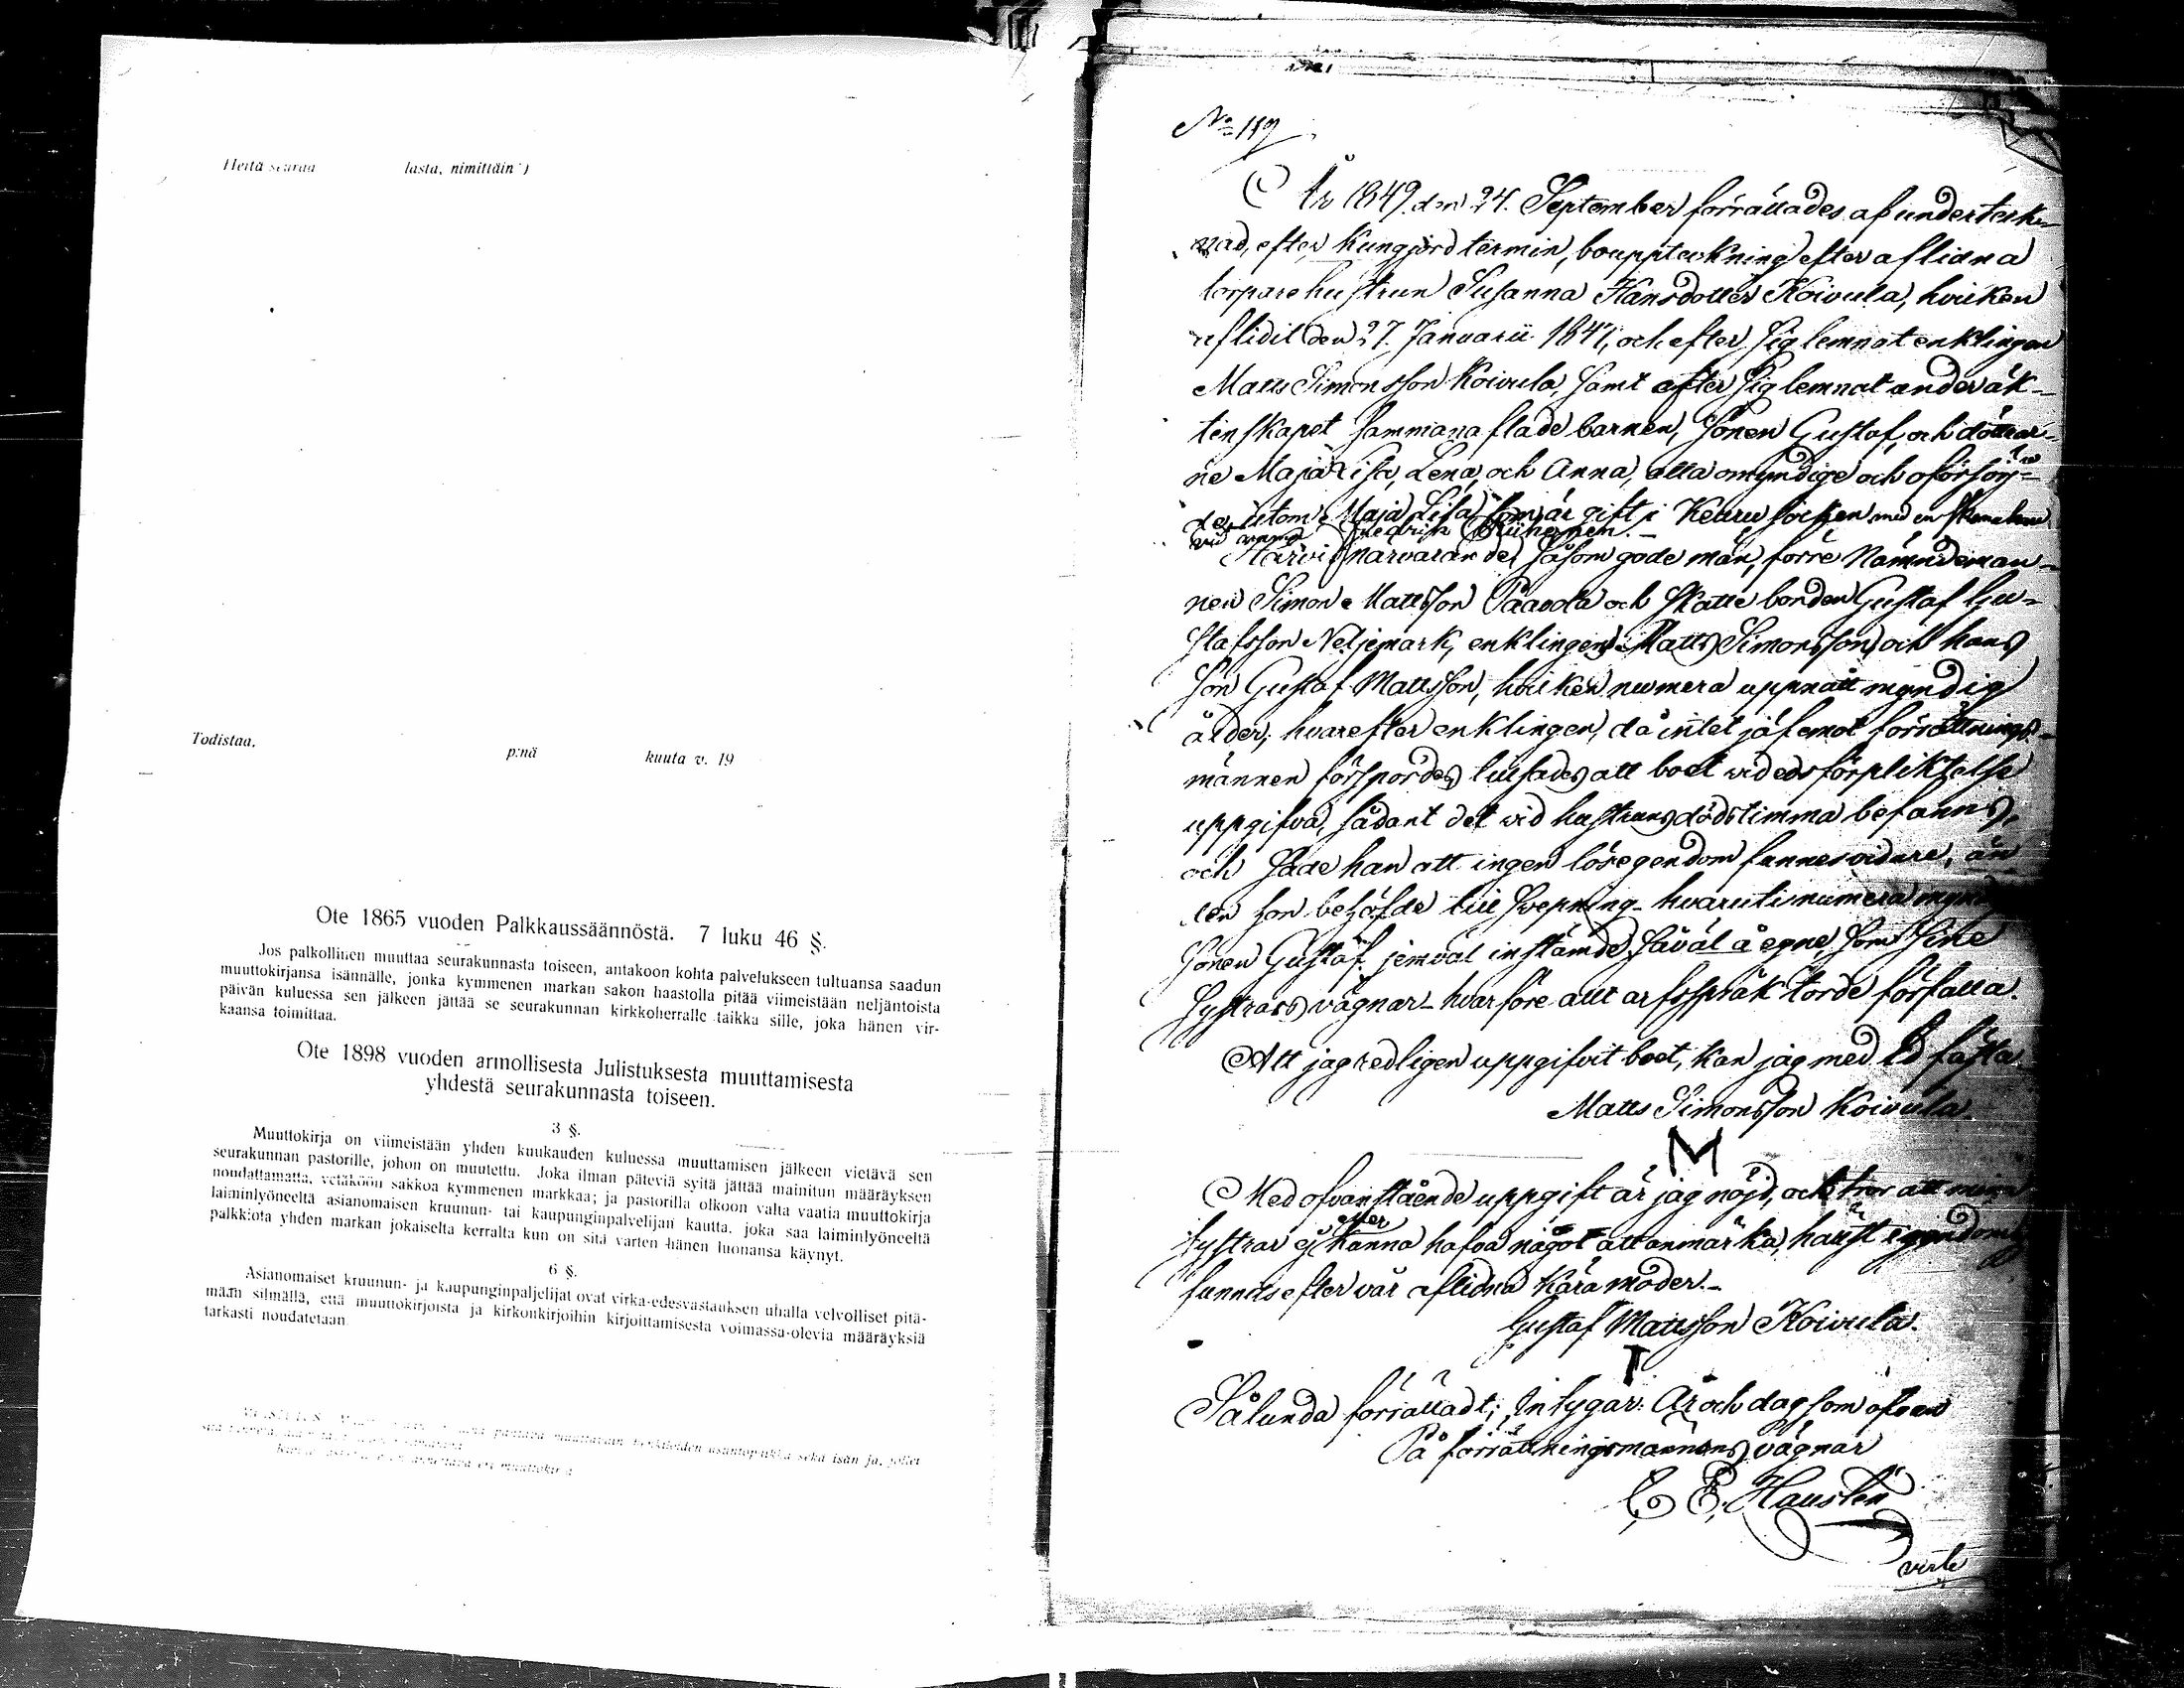 Heitä seuraa lasta, nimittäin
Todistaa, p:nä kuuta v. 19
Ote 1865 vuoden Palkkaussäännöstä. 7 luku 46 §.
Jos palkollinen muuttaa seurakunnasta toiseen, antakoon kohta palvelukseen tultuansa saadun
muuttokirjansa isännälle, jonka kymmenen markan sakon haastolla pitää viimeistään neljäntoista
päivän kuluessa sen jälkeen jättää se seurakunnan kirkkoherralle taikka sille, joka hänen vir-
kaansa toimittaa.
Ote 1898 vuoden armollisesta Julistuksesta muuttamisesta
yhdestä seurakunnasta toiseen.
3 §.
Muuttokirja on viimeistään yhden kuukauden kuluessa muuttamisen jälkeen vietävä sen
seurakunnan pastorille, johon on muutettu. Joka ilman päteviä syitä jättää mainitun määräyksen
noudattamatta, vetäköön sakkoa kymmenen markkaa; ja pastorilla olkoon valta vaatia muuttokirja
laiminlyöneeltä asianomaisen kruunun- tai kaupunginpalvelijan kautta. joka saa laiminlyöneeltä
palkkiota yhden markan jokaiselta kerralta kun on sitä varten hänen luonansa käynyt.
6 §.
Asianomaiset kruunun- ja kaupunginpaljelijat ovat virka-edesvastauksen uhalla velvolliset pitä-
mään silmällä, että muuttokirjoista ja kirkonkirjoihin kirjoittamisesta voimassa-olevia määräyksiä
tarkasti noudatetaan
muuttavain usantopaikka sekä isän ja, jollet
muuttokirja
No 119
År 1849. den 24. September förrättades af underteck-
nad, efter kungjord termin, bouppteckning efter aflidna
torpare hustrun Susanna Hansdotter Koivula, hvilken
aflidit den 27. Januarii 1847, och efter sig lemnat enklingen
Matts Simonsson Koivula, samt efter sig lemnat under äk-
tenskapet sammanaflade barnen, Sonen Gustaf, och döttrar-
ne Maja Lisa, Lena, och Anna, alla omyndige och oförsörj-
de, utom Maja Lisa som är gift i Keuru socken med en
vid namn Fredrik
Härvid närvarande såsom gode män, förre Nämndeman-
nen Simon Mattsson Paavola och Skatte bonden Gustaf Gu-
stafsson Neljemark, enklingen Matts Simonsson och hans
son Gustaf Mattsson, hvilken numera uppnått myndig
ålder; hvarefter enklingen, då intet jäf emot förrättnings-
männen förspordes tillsades att boet vid eds förpliktelse
uppgifva, sådant det vid hustruns dödstimma befanns,
och sade han att ingen lösegendom funnes vidare, än
den hon behöfde till svepning - hvaruti numera
Sonen Gustaf jemväl instämde, såväl å egne, som sine
systrars vägnar - hvarföre allt arfsspråk torde förfalla.
Att jag redligen uppgifvit boet, kan jag med Ed fästa.
Matts Simonsson Koivula.
M
Med ofvanstående uppgift är jag nöjd, och tror att mina
systrar ej eller kunna hafva något att anmärka,
funnits efter vår aflidna kära moder. -
Gustaf Mattsson Koivula.
T
Sålunda förrättadt; Intygar. År och dag som ofvan
På förrättningsmännens vägnar
C E. Hausten
verte